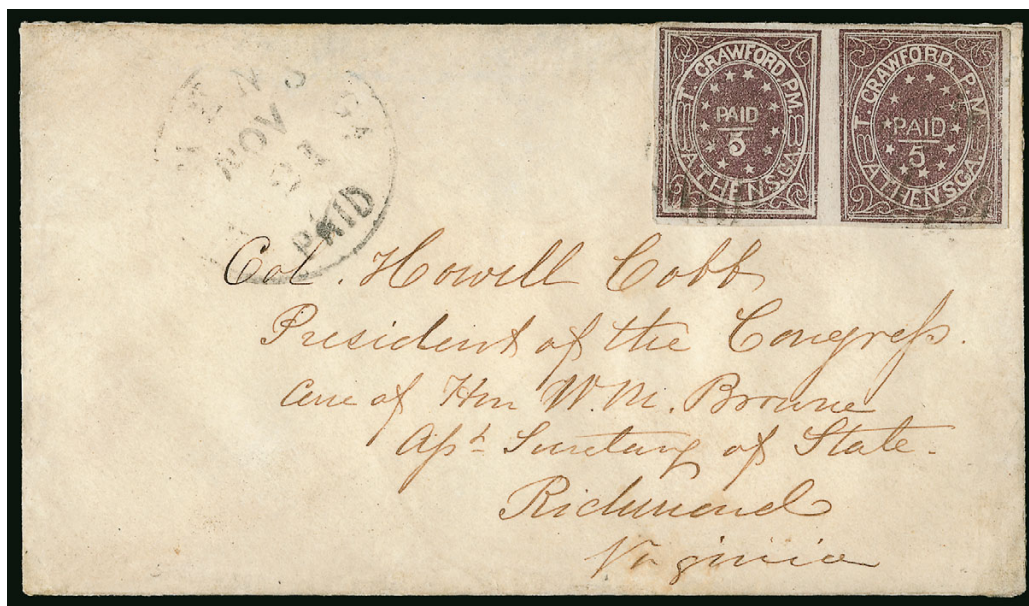 T. CRAWFORD, P.M.
PAID
5
ATHENS, GA.
T. CRAWFORD, P.M.
PAID
5
ATHENS, GA.
GA
NOV
PAID
Col. Howell Cobb
President of the Congress.
Care of Hon W. M. Browne
Asst Secretary of State.
Richmond
Virginia